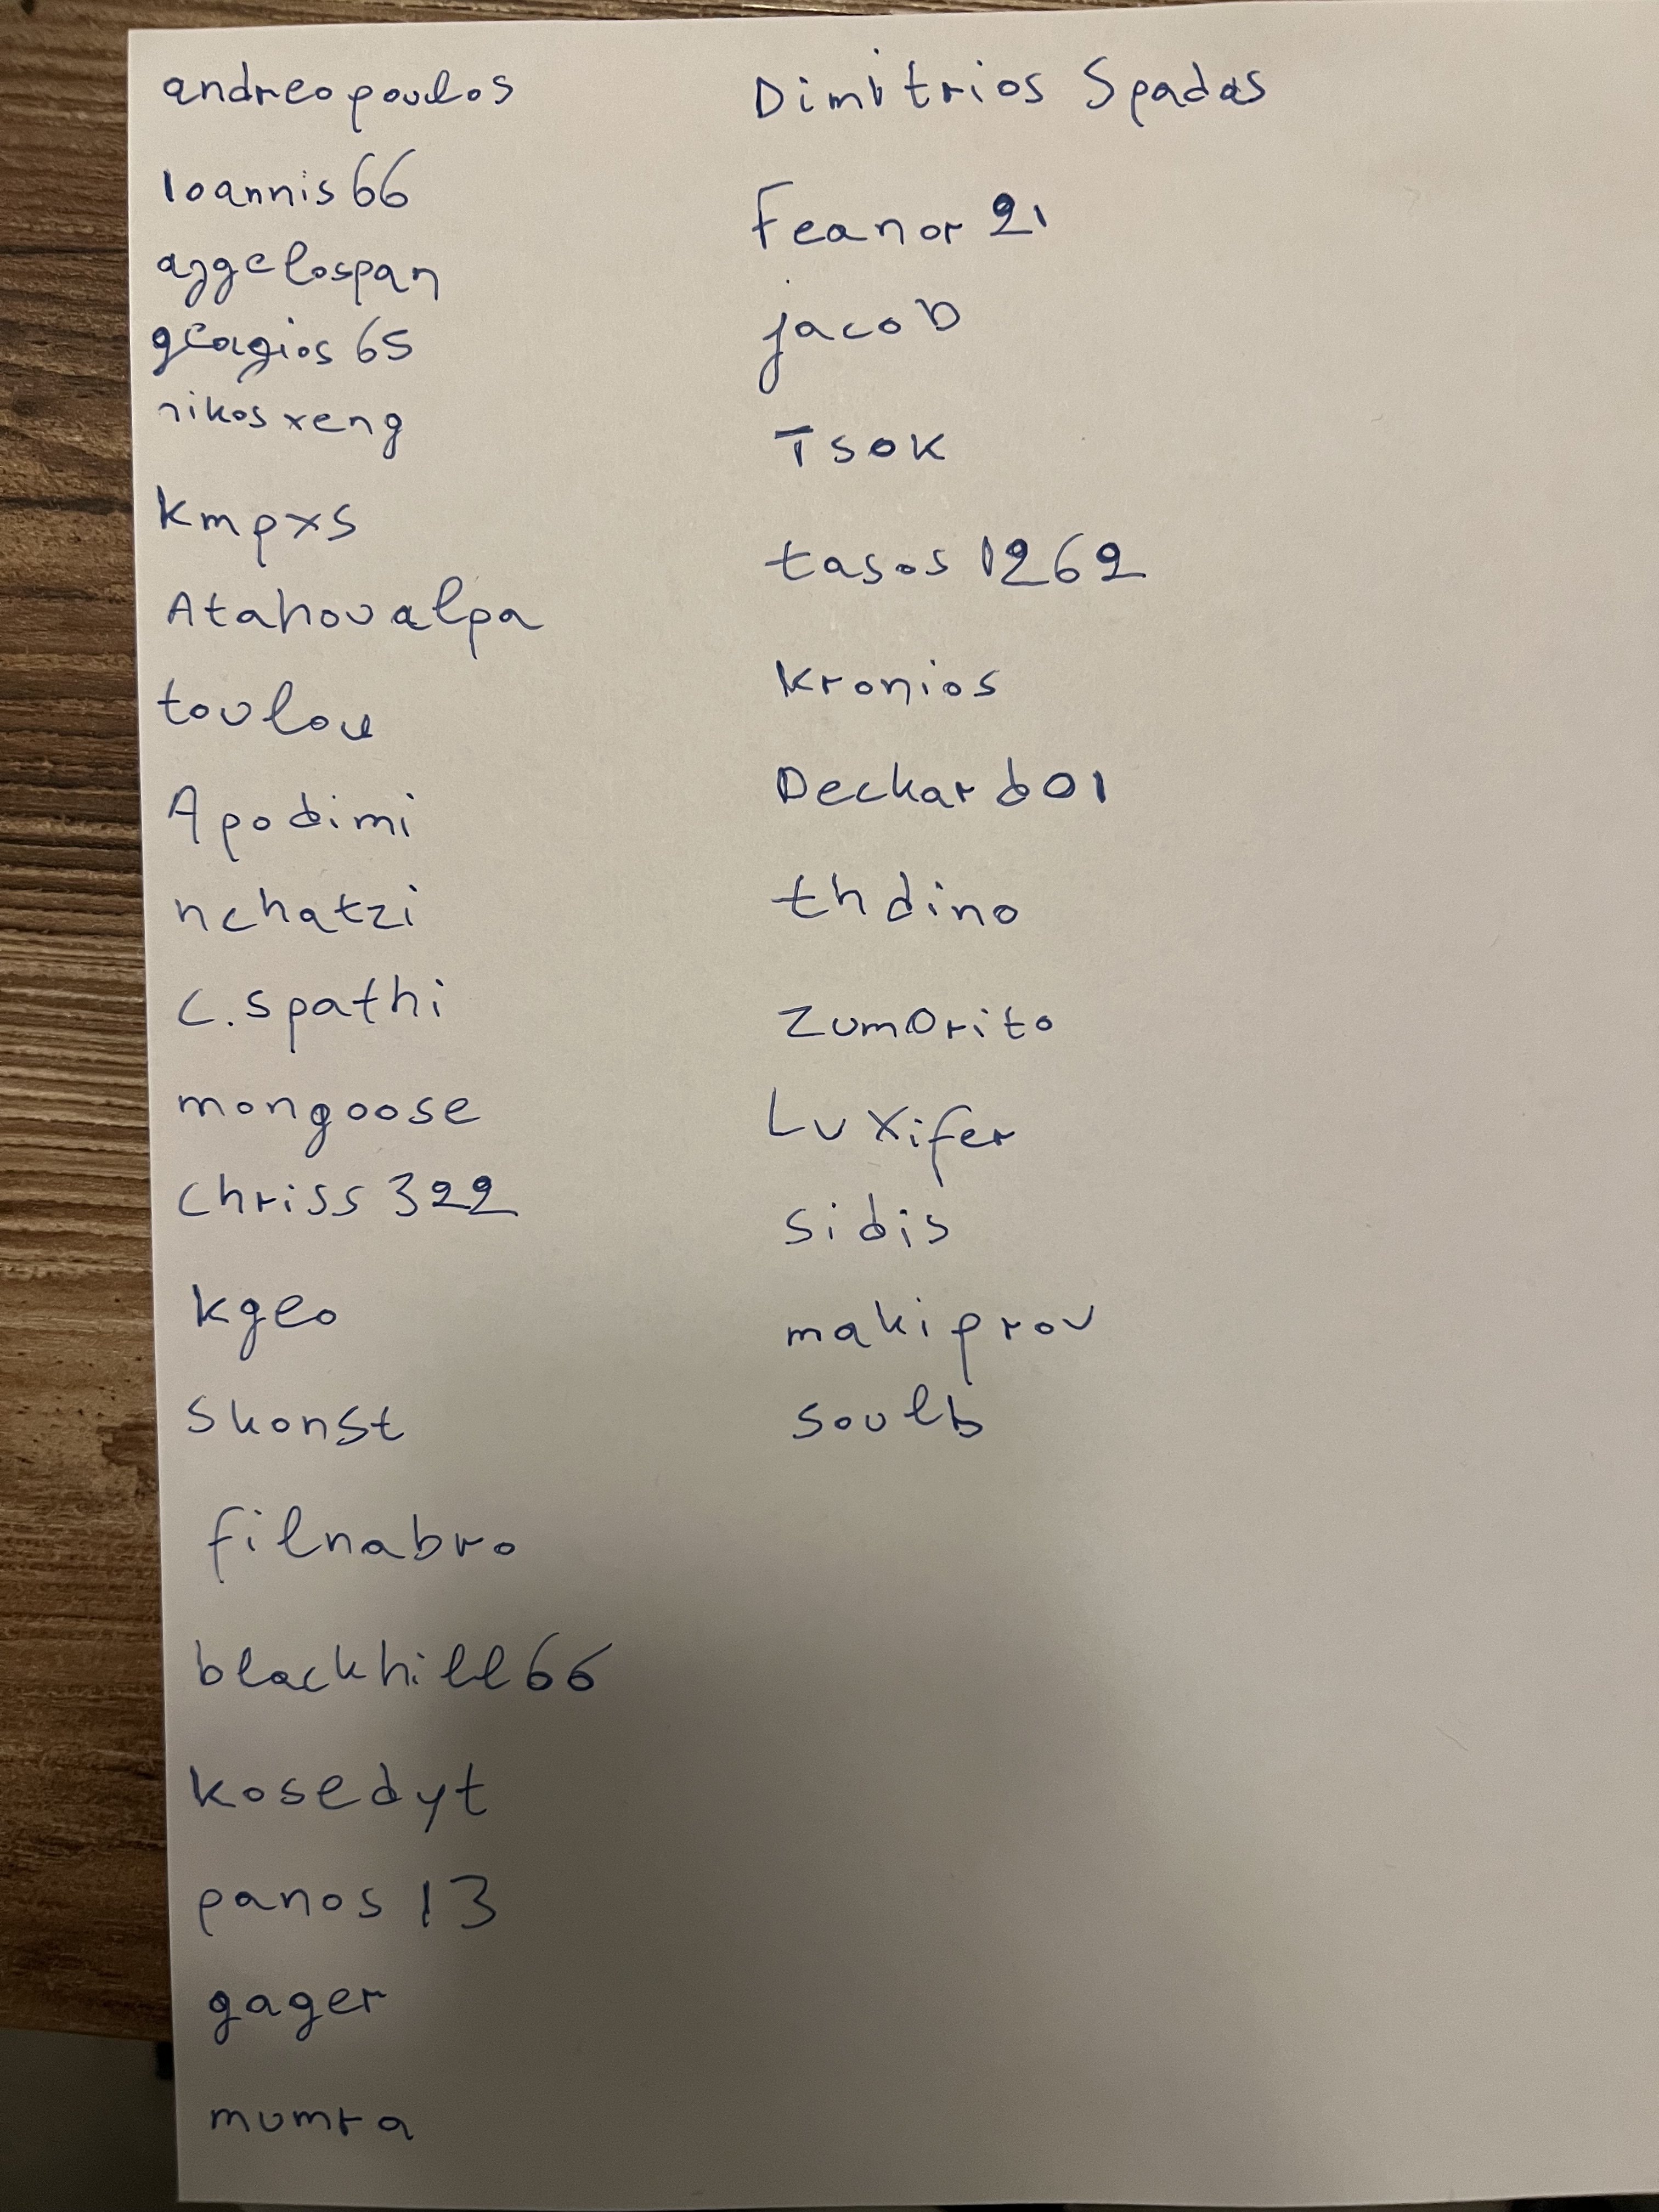 andreopoulos
Ioannis66
aggelospan
geoagios65
nikosxeng
kmpxs
Atahoualpa
toulou
Apodimi
nchatzi
c.spathi
mongoose
chriss322
kgeo
skonst
filnabro
blackhill66
kosedyt
panos13
gager
mumra
Dimitrios Spadas
Feanor21
jacob
Tsok
tasos1262
kronios
Deckard01
thdino
zumOrito
LuXifer
sidis
makiprov
soulb